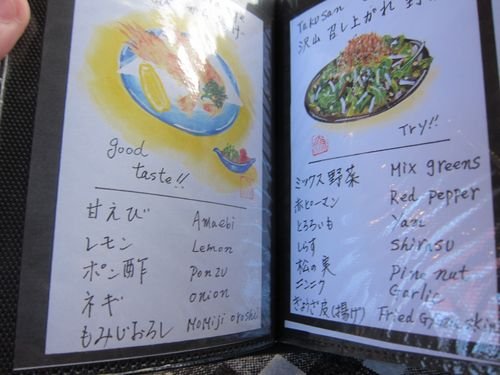 good
taste!!
甘えび Amaebi
レモン Lemon
ポン酢 Ponzu
ネギ onion
もみじおろし MoMiji oroshi
Takusan
沢山 召し上がれ
Try!!
ミックス野菜 Mix greens
赤ピーマン Red pepper
とろろいも Yam
しらす Shirasu
松の実 Pine nut
ニンニク Garlic
ぎょうざ皮(揚げ) Fried